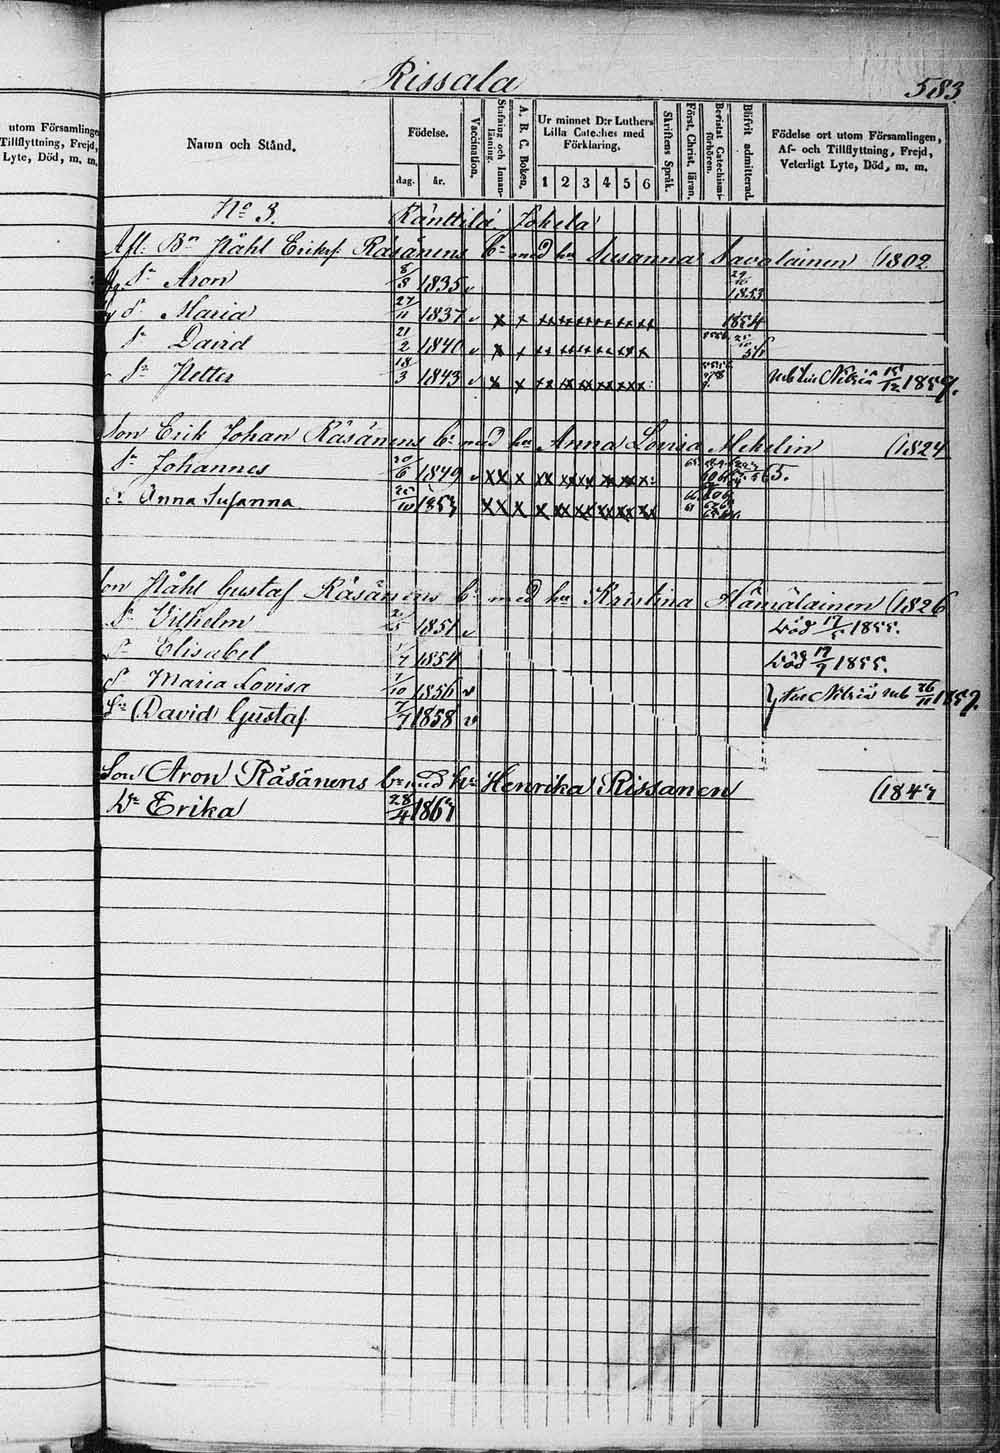 Rissala
583.
utom Församlinge
Tillflyttning, Frejd,
Lyte, Död, m. m.
Namn och Stånd.
Födelse.
dag. år.
Vaccination.
Stafning och Innanläsning.
A. B. C. Boken.
Ur minnet D:r Luthers
Lilla Cateches med
Förklaring,
1 2 3 4 5 6
Skriftens Språk.
Först. Christ. läran.
Bevistat Catechismiförhören.
Blifvit admitterad.
Födelse ort utom Församlingen,
Af- och Tillflyttning, Frejd,
Veterligt Lyte, Död, m. m.
No 3. Ränttilä Jokela
Afl. Bn Påhl Eriksf. Räsänens bn med hu Susanna Savolainen (1802
Aron 8/8 1835 v 1853
Maria 27/11 1837 v x x 1854
Sn David 21/2 1840 v x x
Sn Petter 18/3 1843 v x x 15/12 1859.
Son Erik Johan Räsänens bn med hu Anna Lovisa Mekelin (1824
Sn Johannes 20/6 1849 v xx x 65.
Anna Susanna 25/10 1853 xx x
Son Påhl Gustaf Räsänens bn med hu Kristina Hämäläinen (1826
Sn Vilhelm 1851 v död 17/5 1855.
Elisabet 1/7 1854 död 17/7 1855.
Maria Lovisa 7/10 1856 v 26/11 1859.
Sn David Gustaf 7/7 1858 v
Son Aron Räsänens bn med hu Henrika Rissanen (1847
Dr Erika 28/4 1867